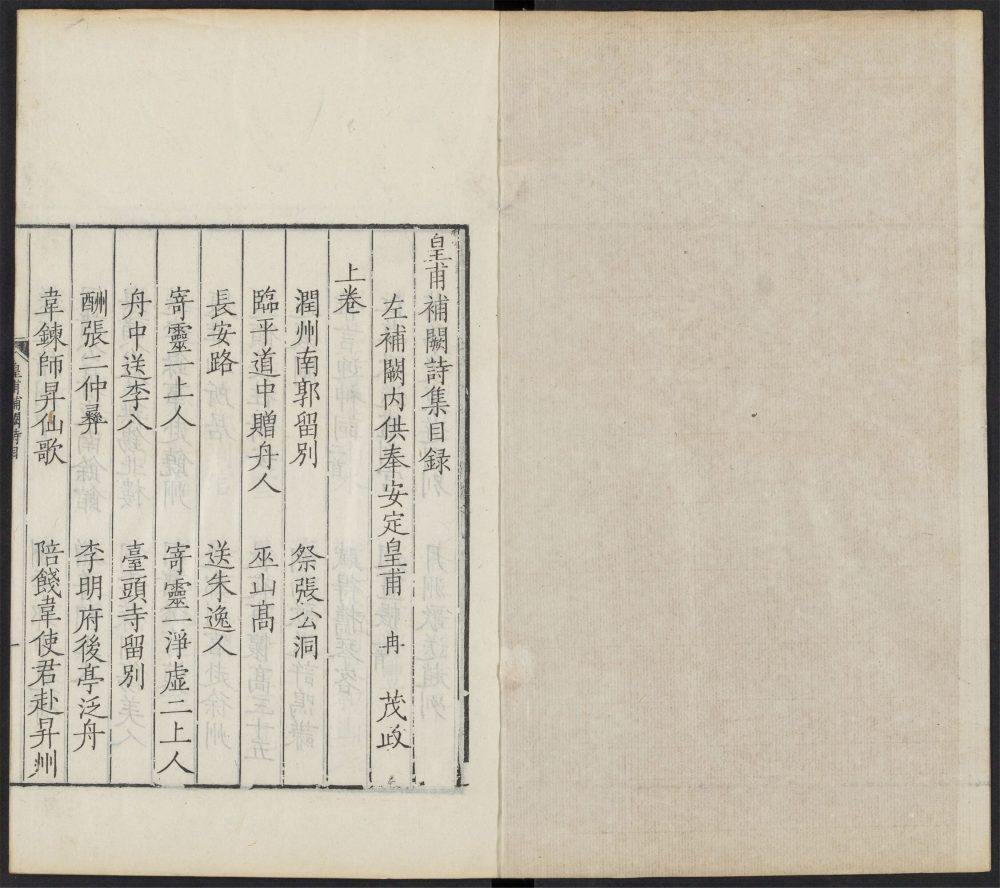 皇甫補闕詩集目録
左補闕内供奉安定皇甫 冉 茂政
上卷
潤州南郭留别 祭張公洞
臨平道中贈舟人 巫山髙
長安路 送朱逸人
寄靈一上人 寄靈一淨虚二上人
舟中送李八 臺頭寺留别
酬張二仲彞 李明府後亭泛舟
韋鍊師昇仙歌 陪餞韋使君赴昇州
皇甫補闕詩目
一